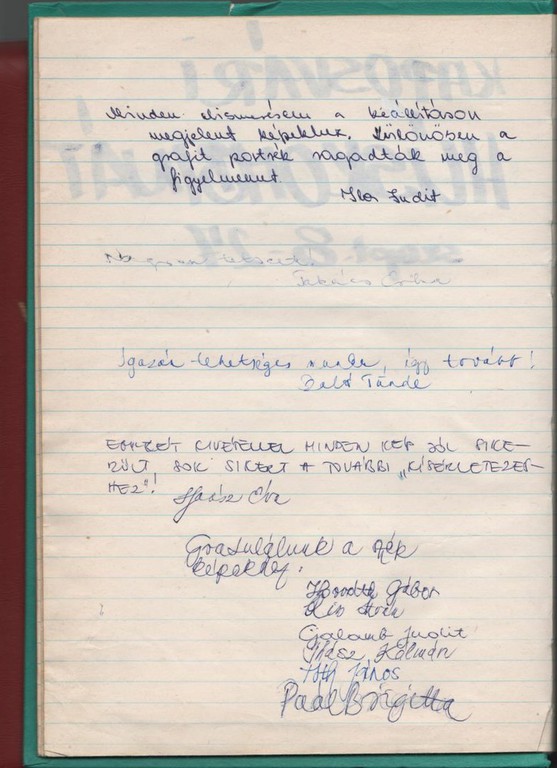 Minden elismerésem a kiállításon
megjelent képekhez. Különösen a
grafit portrék ragadták meg a
figyelmemet.
Judit
Nagyon tetszett!
Takács
Igazán tehetséges munka, így tovább!
Zala Tünde
EGY-KÉT KIVÉTELLEL MINDEN KÉP JÓL SIKE-
RÜLT, SOK SIKERT A TOVÁBBI „KÍSÉRLETEZÉS-
HEZ"!
Haász Éva
Gratulálunk a szép
képekhez!
Horváth Gábor
Kis
Galamb Judit
Kálmán
Tóth János
Paál Brigitta